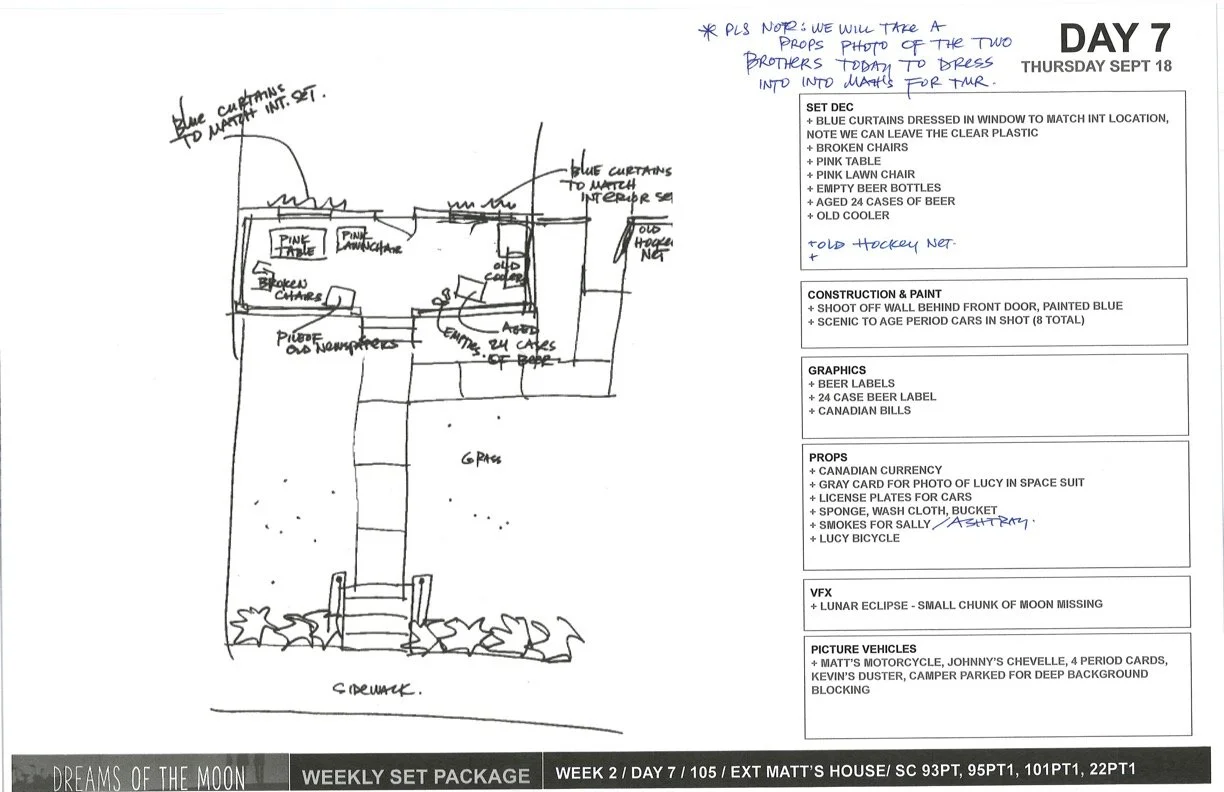 * PLS NOTE: WE WILL TAKE A
PROPS PHOTO OF THE TWO
BROTHERS TODAY TO DRESS
INTO INTO MATT'S FOR TMR.
DAY 7
THURSDAY SEPT 18
BLUE CURTAINS
TO MATCH INT. SET.
BLUE CURTAINS
TO MATCH
INTERIOR SE
PINK
TABLE
PINK
LAWNCHAIR
OLD
COOLER
OLD
HOCKE
NET
BROKEN
CHAIRS
PILE OF
OLD NEWSPAPERS
EMPTIES.
AGED
24 CASES
OF BEER
GRASS
SIDEWALK.
SET DEC
+ BLUE CURTAINS DRESSED IN WINDOW TO MATCH INT LOCATION,
NOTE WE CAN LEAVE THE CLEAR PLASTIC
+ BROKEN CHAIRS
+ PINK TABLE
+ PINK LAWN CHAIR
+ EMPTY BEER BOTTLES
+ AGED 24 CASES OF BEER
+ OLD COOLER
+ OLD HOCKEY NET.
+
CONSTRUCTION & PAINT
+ SHOOT OFF WALL BEHIND FRONT DOOR, PAINTED BLUE
+ SCENIC TO AGE PERIOD CARS IN SHOT (8 TOTAL)
GRAPHICS
+ BEER LABELS
+ 24 CASE BEER LABEL
+ CANADIAN BILLS
PROPS
+ CANADIAN CURRENCY
+ GRAY CARD FOR PHOTO OF LUCY IN SPACE SUIT
+ LICENSE PLATES FOR CARS
+ SPONGE, WASH CLOTH, BUCKET
+ SMOKES FOR SALLY / ASHTRAY.
+ LUCY BICYCLE
VFX
+ LUNAR ECLIPSE - SMALL CHUNK OF MOON MISSING
PICTURE VEHICLES
+ MATT'S MOTORCYCLE, JOHNNY'S CHEVELLE, 4 PERIOD CARDS,
KEVIN'S DUSTER, CAMPER PARKED FOR DEEP BACKGROUND
BLOCKING
DREAMS OF THE MOON
WEEKLY SET PACKAGE
WEEK 2 / DAY 7 / 105 / EXT MATT'S HOUSE/ SC 93PT, 95PT1, 101PT1, 22PT1